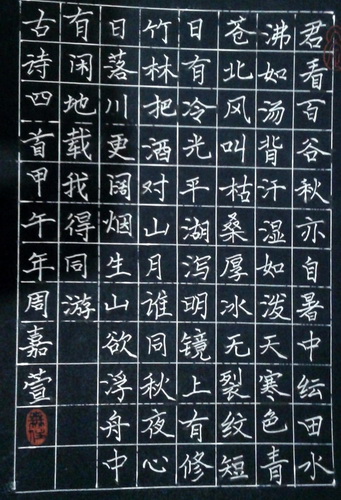 君看百谷秋亦自暑中纭田水
沸如汤背汗湿如泼天寒色青
苍北风叫枯桑厚冰无裂纹短
日有冷光平湖泻明镜上有修
竹林把酒对山月谁同秋夜心
日落川更阔烟生山欲浮舟中
有闲地载我得同游
古诗四首甲午年周嘉萱